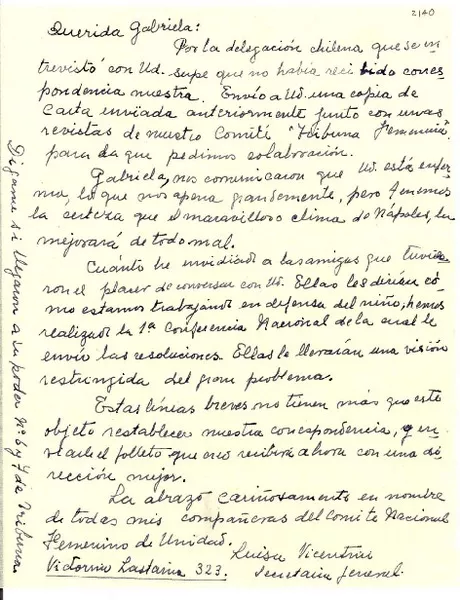 2140
Querida Gabriela:
Por la delegación chilena que se en
trevistó con Ud. supe que no había recibido corres
pondencia nuestra. Envío a Ud. una copia de
carta enviada anteriormente junto con unas
revistas de nuestro Comité "Tribuna Femenina"
para la que pedimos colaboración.
Gabriela, nos comunicaron que Ud. está enfer
ma, lo que nos apena grandemente, pero tenemos
la certeza que el maravilloso clima de Nápoles, la
mejorará de todo mal.
Cuánto he envidiado a las amigas que tuvie
ron el placer de conversar con Ud. Ellas les dirían có
mo estamos trabajando en defensa del niño; hemos
realizado la 1ª Conferencia Nacional de la cual le
envío las resoluciones. Ellas le llevarían una visión
restringida del gran problema.
Estas líneas breves no tienen más que este
objeto restablecer nuestra correspondencia, y en
viarle el folleto que creo recibirá ahora con una di
rección mejor.
La abrazó cariñosamente en nombre
de todas mis compañeras del Comité Nacional
Femenino de Unidad.
Luisa Vicentini
Victorino Lastarria 323.
Secretaria General.
Dígame si llegaron a su poder Nº 6 y 7 de Tribuna